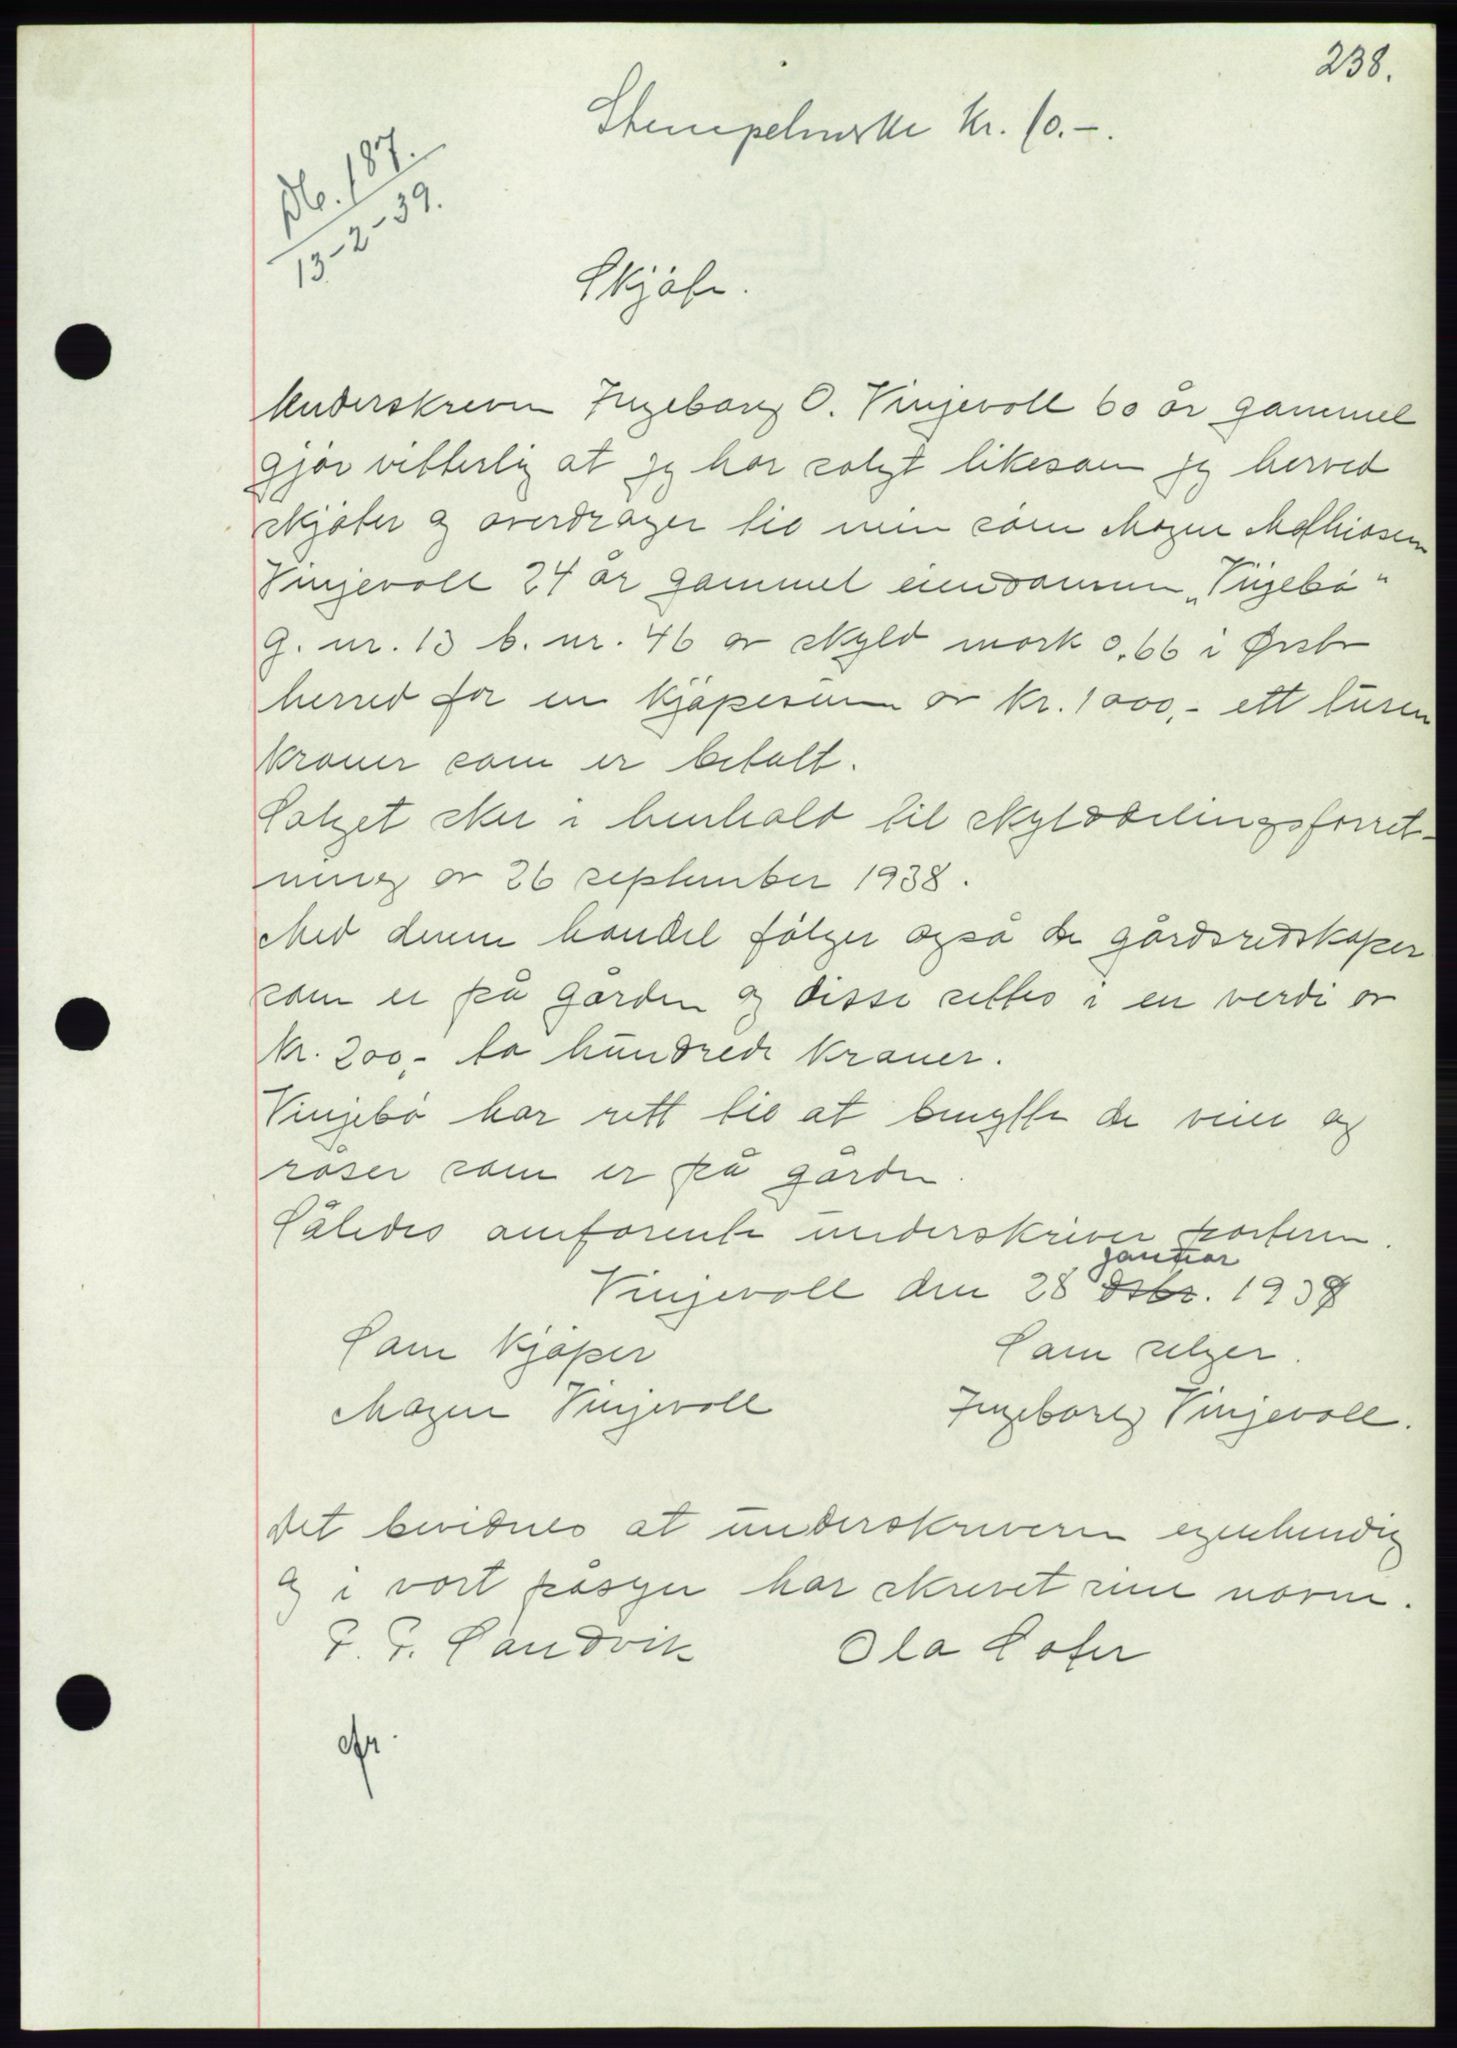 238.
Stempelmerke kr. 10.-.
Db. 187.
13-2-39.
Skjøte.
Underskreven Ingeborg O. Vinjevoll 60 år gammel
gjør vitterlig at jeg har solgt likesom jeg herved
skjøter og overdrager til min sønn Magne Mathiasen
Vinjevoll 24 år gammel eiendommen „Vinjebø"
g. nr. 13 b. nr. 46 av skyld mark 0,66 i Ørsta
herred for en kjøpesum av kr. 1000,- ett tusen
kroner som er betalt.
Salget sker i henhold til skylddelingsforret-
ning av 26 september 1938.
Med denne handel følger også de gårdsredskaper
som er på gården og disse settes i en verdi av
kr. 200,- to hundrede kroner.
Vinjebø har rett til at benytte de veier og
råser som er på gården.
Således omforente underskriver partene.
januar
Vinjevoll den 28 dsbr. 1939
Som kjøper Som selger.
Magne Vinjevoll Ingeborg Vinjevoll.
Det bevidnes at underskriverne egenhendig
og i vort påsyn har skrevet sine navne.
P. P. Sandvik Ola Sæter